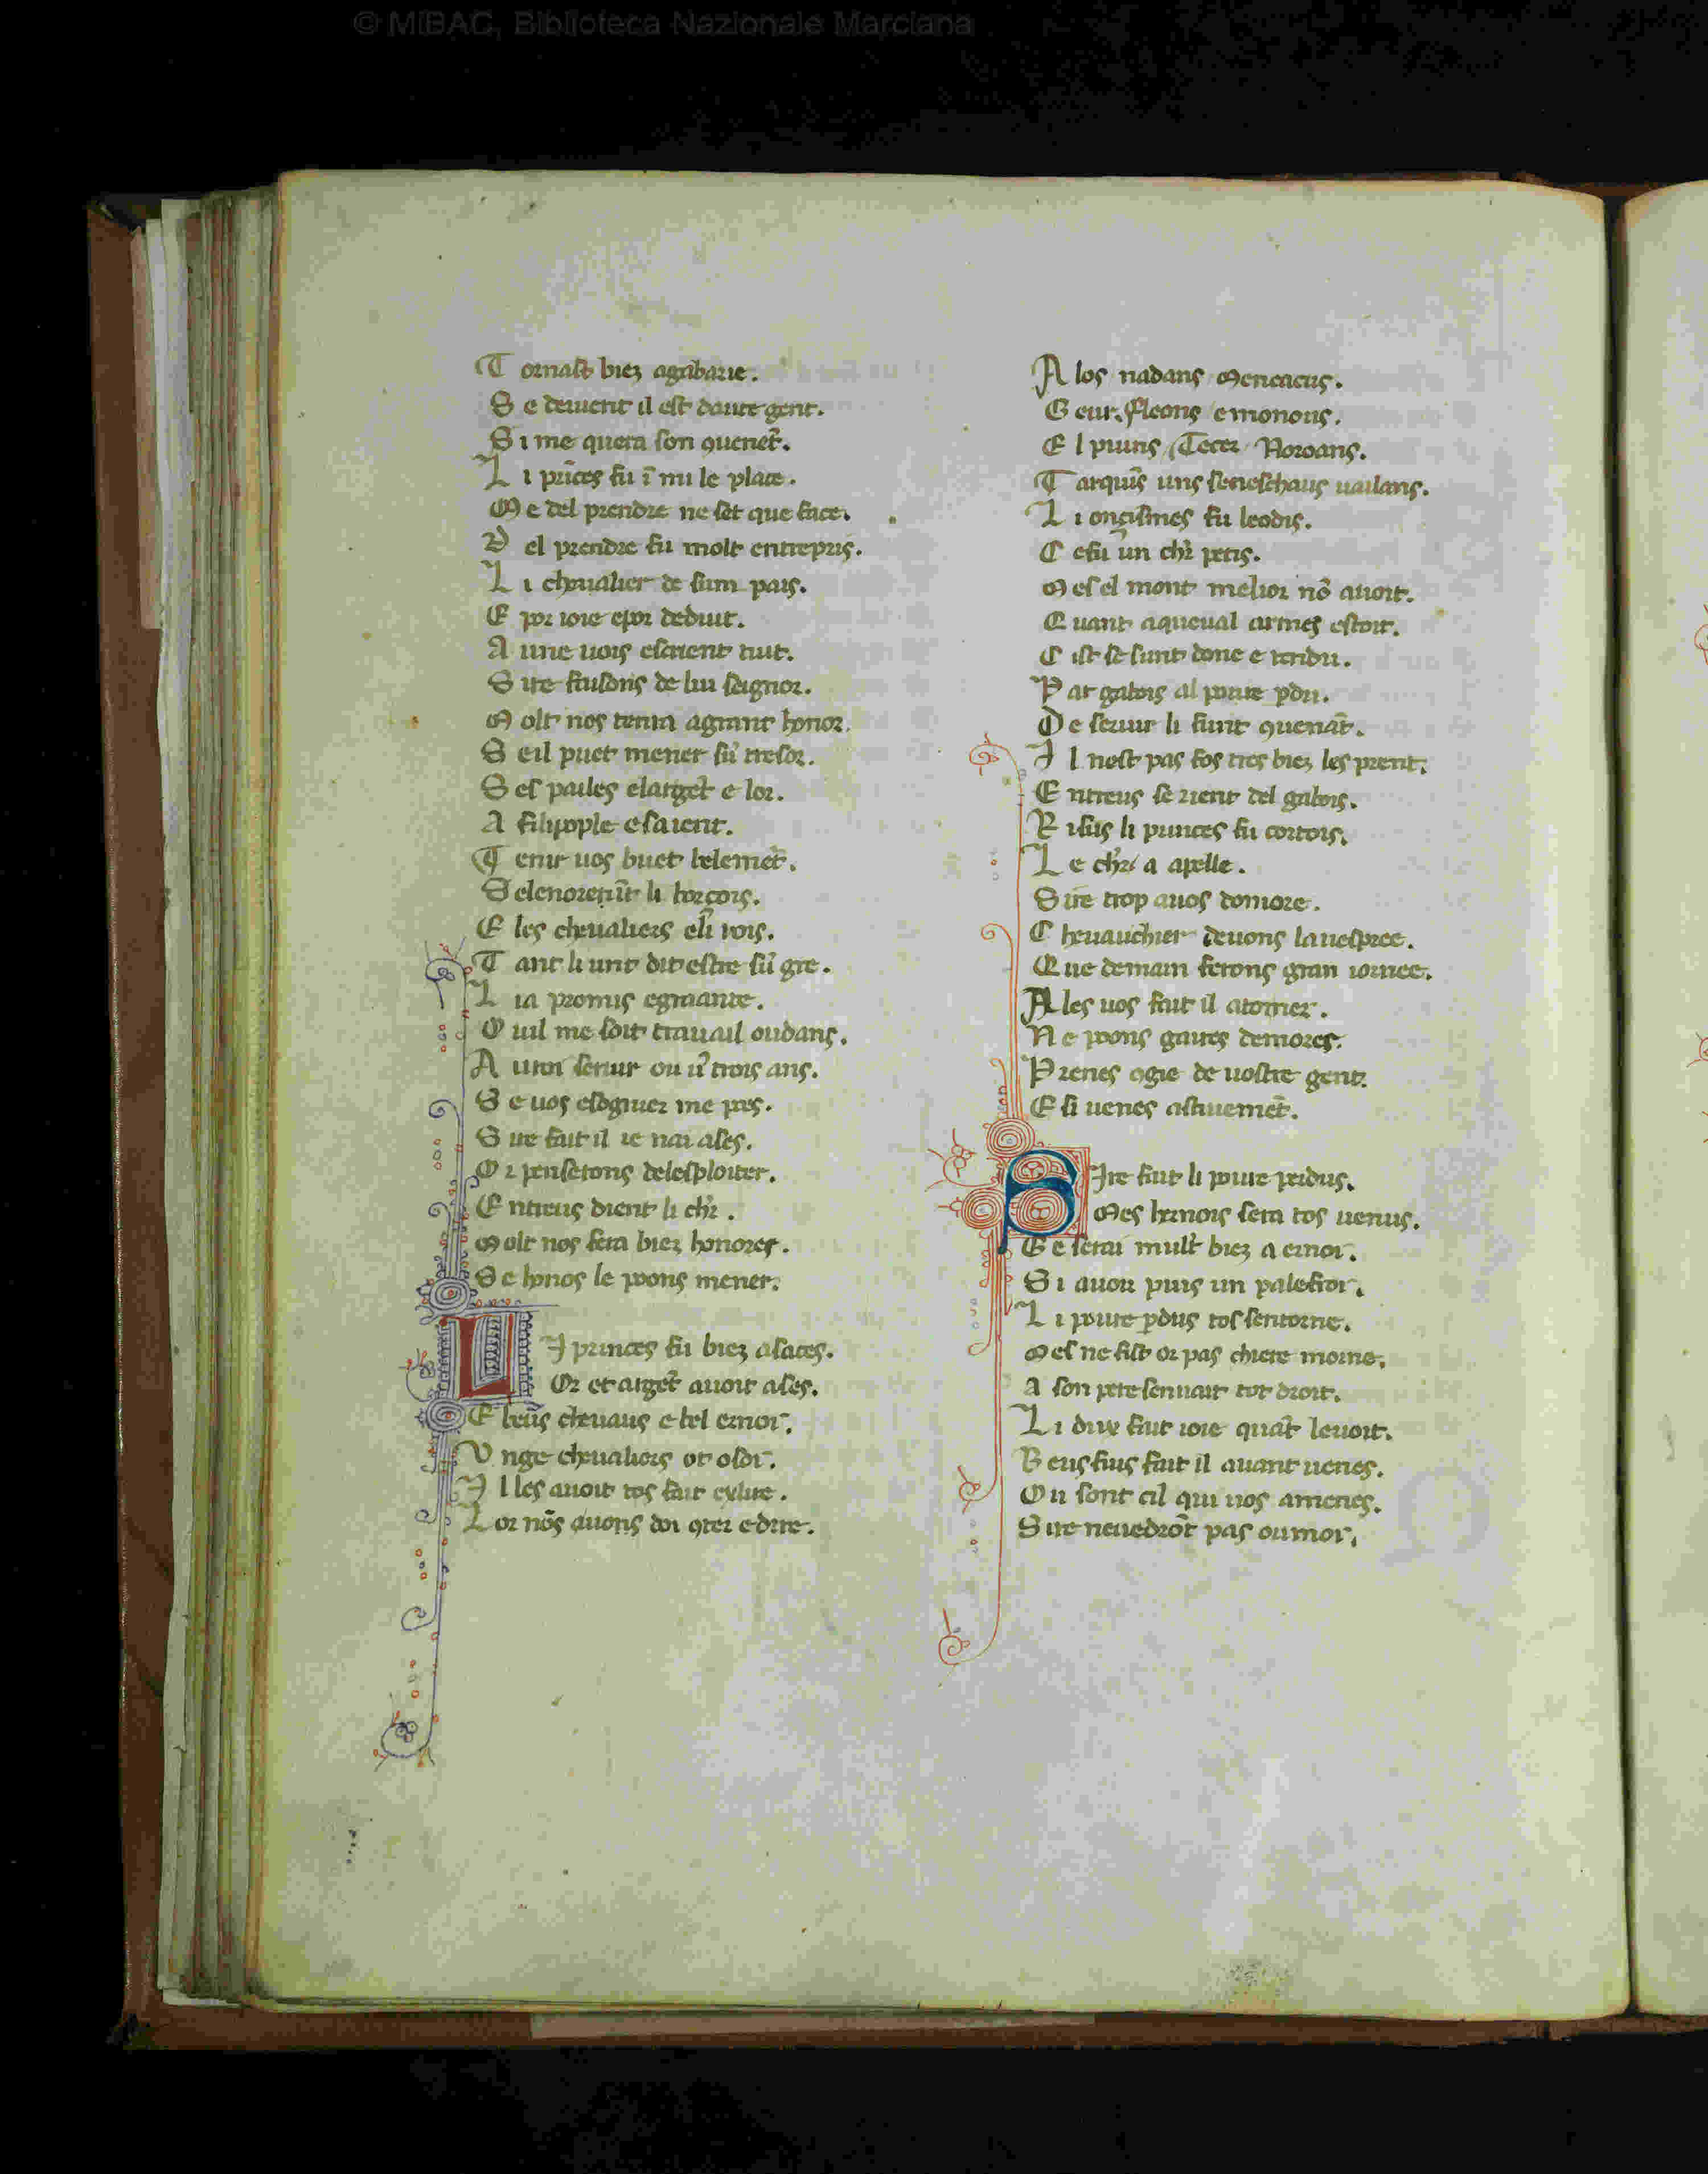 © MiBAC, Biblioteca Nazionale Marciana
T ornast biez agabarie.
S e deuient il est dautre gent.
S i me quera son ꝯuenet̃.
L i p̃nces fu ĩ mi le place.
M e del prendre ne set que face.
D el prendre fu molt entrepris.
L i cheualier de sum pais.
E por ioie epor deduit.
A une uois escrient tuit.
S ire faisons de lui seignor.
M olt nos tenra agrant honor.
S eil puet mener sũ tresor.
S es pailes elarget̃ e lor.
A filipople
T enir uos buet belemet̃.
li borçois.
E les cheualiers eli rois.
T ant li unt dit estre sũ gre.
L ia promis egraante.
O uil me soit trauail oudans.
A uroi seriur ou ũ trois ans.
S e uos
S ire fait il ie nai ases.
O r penserons delesploiter.
E ntreus dient li chr̃.
M olt nos fera biez honorer.
S e honos le poons mener.
L I princes fu biez asaces.
Or et arget̃ auoit ases.
E beũs cheuaus e bel ernoi.
V nge cheualiers ot osoi.
I lles auoit tos fait exlire.
L or nõs auons doi ꝯter edire.
A los nadans Meneacus.
G eur. Fleons emonous.
E l piuns Tecer Noroans.
T arquĩs uns seneschaus uailans.
L i onçismes fu leodis.
C efu un chr̃ petis.
M es el mont melior nõ auoit.
Q uant aqueual armes estoit.
C ist se sunt done e rendu.
P ar gabois al poure pdu.
D e seruir li sunt ꝯuenãt.
I l nest pas fos tres biez les prent.
E ntreus se rient del gabois.
R isus li princes fu cortois.
L e chr̃ a apelle.
S ire trop auos domore.
C heuauchier deuons lauespree.
Q ue demain ferons gran iornee.
A les uos fait il atorner.
N e poons gaires demores.
P renes ꝯgie de uostre gent.
E si uenes astiuemet̃.
S Ire fait li poure peidus.
Mes hernois sera tos uenus.
G e serai mult̃ biez a ernoi.
S i auou puis un palefroi.
L i poure pdus tos sentorne.
M es ne fist or pas chiere morne.
A son pere sennait tot droit.
L i dux fait ioie quãt leuoit.
B eus fius fait il auant uenes.
O u sont cil qui uos amenes.
S ire neuedrõt pas oumoi.